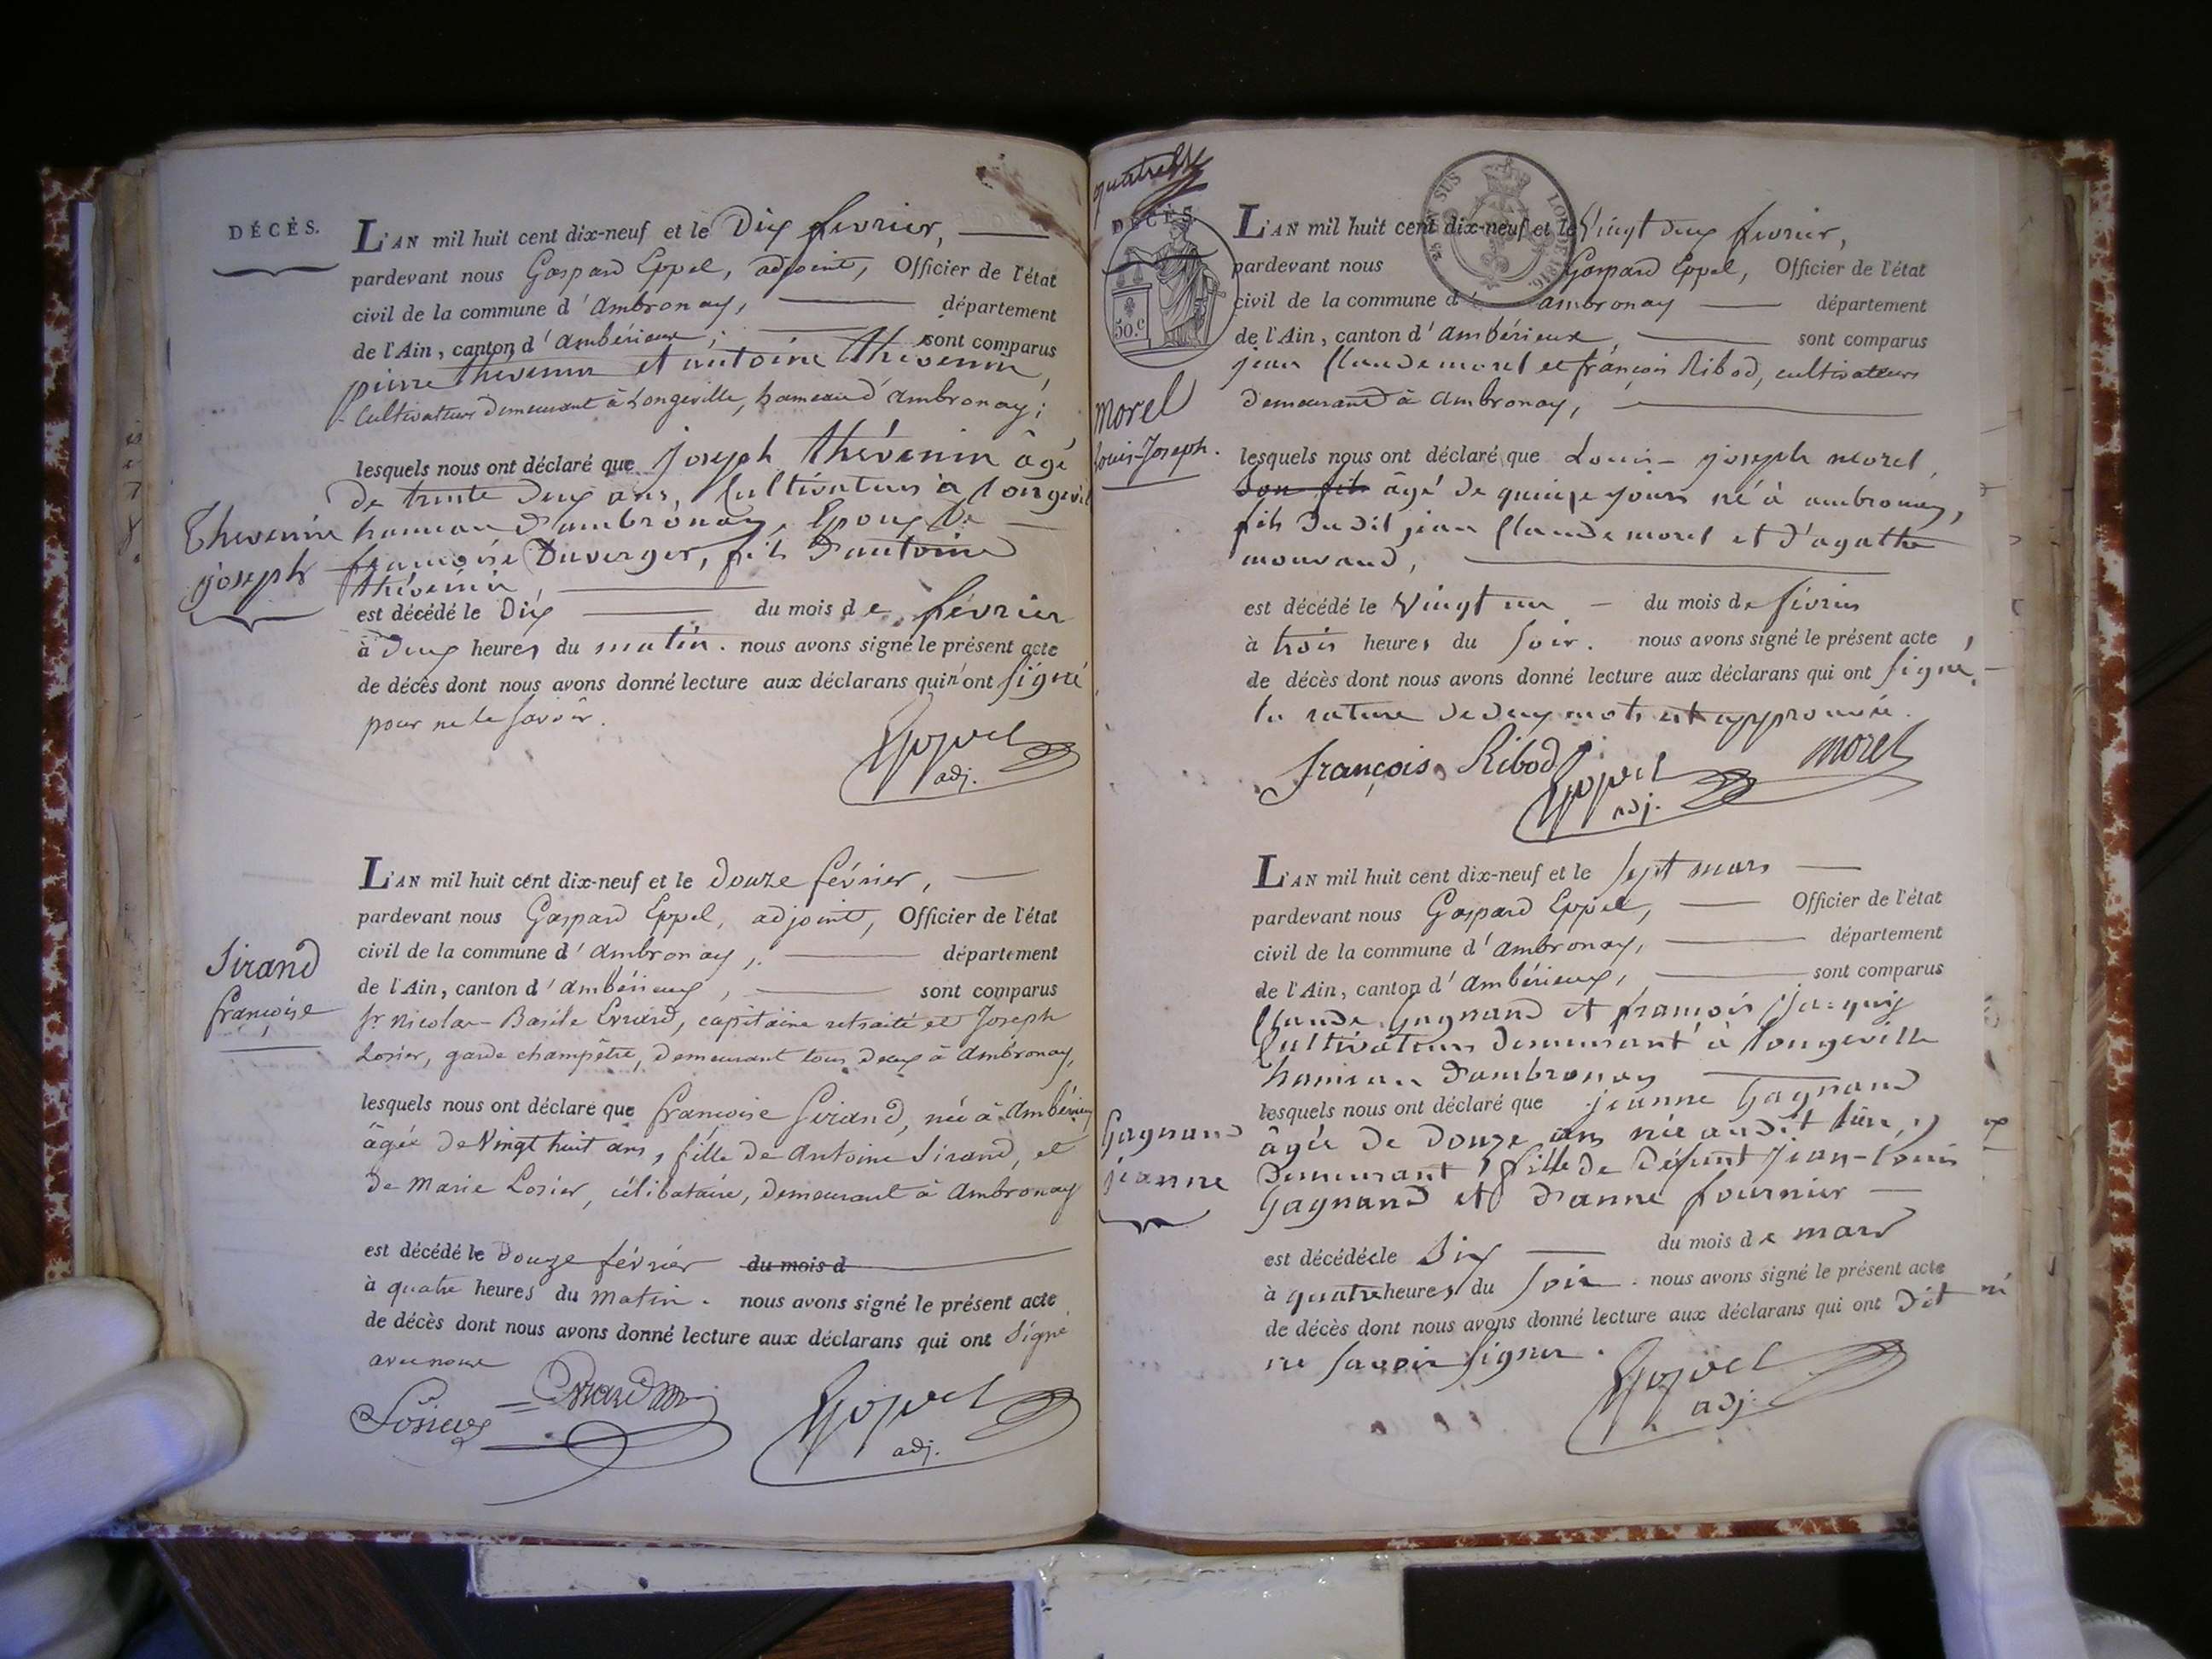 DÉCÈS.
L'AN mil huit cent dix-neuf et le Dix février,
pardevant nous Gaspard Eppel, adjoint, Officier de l'état
civil de la commune d'Ambronay, département
de l'Ain, canton d'Ambérieux, sont comparus
pierre thevenin et antoine thévenin,
Cultivateurs demeurant à Longeville, hameau d'Ambronay;
lesquels nous ont déclaré que joseph thévenin âgé
de trente deux ans, Cultivateur à longevil
hameau d'ambronay, Epoux de
françoise Duverger, fils d'antoine
thévenin
Thevenin
joseph
est décédé le Dix du mois de février
à deux heures du matin. nous avons signé le présent acte
de décès dont nous avons donné lecture aux déclarans qui n'ont signé
pour ne le savoir.
Eppel
adj.
L'AN mil huit cent dix-neuf et le douze février,
pardevant nous Gaspard Eppel, adjoint, Officier de l'état
civil de la commune d'Ambronay, département
de l'Ain, canton d'Ambérieux, sont comparus
Sr Nicolas-Basile Evrard, capitaine retraité et Joseph
Losier, garde champêtre, demeurant tous deux à Ambronay,
Sirand
françoise
lesquels nous ont déclaré que françoise Sirand, née à Ambérieux
âgée de Vingt huit ans, fille de Antoine Sirand, et
de Marie Losier, célibataire, demeurant à Ambronay
est décédé le Douze février du mois d
à quatre heures du matin. nous avons signé le présent acte
de décès dont nous avons donné lecture aux déclarans qui ont signé
avec nous
Losier Evrard Eppel
adj.
DÉCÈS.
50.c
LOI DE 1816.
L'AN mil huit cent dix-neuf et le Vingt deux février,
pardevant nous Gaspard Eppel, Officier de l'état
civil de la commune d'ambronay département
de l'Ain, canton d'Ambérieux, sont comparus
jean Claude morel et françois Ribod, cultivateurs
demeurant à Ambronay,
Morel
Louis-Joseph.
lesquels nous ont déclaré que Louis-joseph morel
son fils âgé de quinze jours né à ambronay,
fils dudit jean Claude morel et d'agathe
mouraud,
est décédé le Vingt un du mois de février
à trois heures du soir. nous avons signé le présent acte
de décès dont nous avons donné lecture aux déclarans qui ont signé,
la rature de deux mots est approuvée.
françois Ribod Eppel Morel
adj.
L'AN mil huit cent dix-neuf et le sept mars
pardevant nous Gaspard Eppel, Officier de l'état
civil de la commune d'Ambronay, département
de l'Ain, canton d'Ambérieux, sont comparus
Claude Gagnand et françois jacquij
Cultivateurs demeurant à longeville
hameau d'ambronay
lesquels nous ont déclaré que jeanne Gagnand
âgée de douze ans née audit lieu, y
demeurant fille de défunt jean-louis
Gagnand et d'anne fournier
Gagnand
jeanne
est décédée le Six du mois de mars
à quatre heures du soir. nous avons signé le présent acte
de décès dont nous avons donné lecture aux déclarans qui ont dit
ne savoir signer.
Eppel
adj.